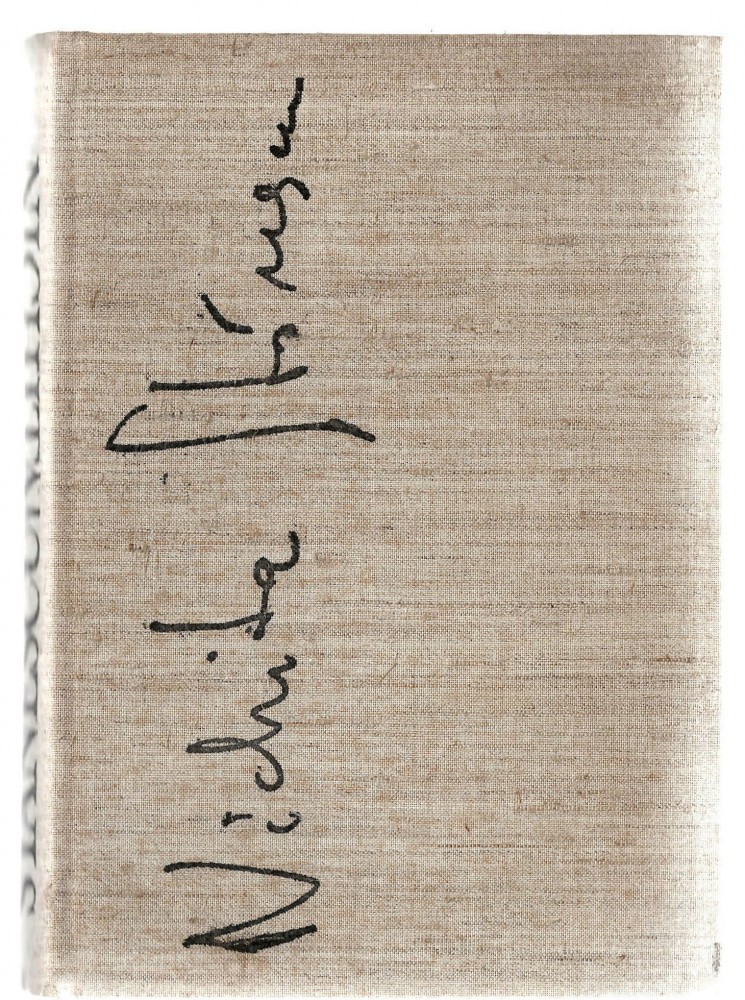 Nichita Stănescu